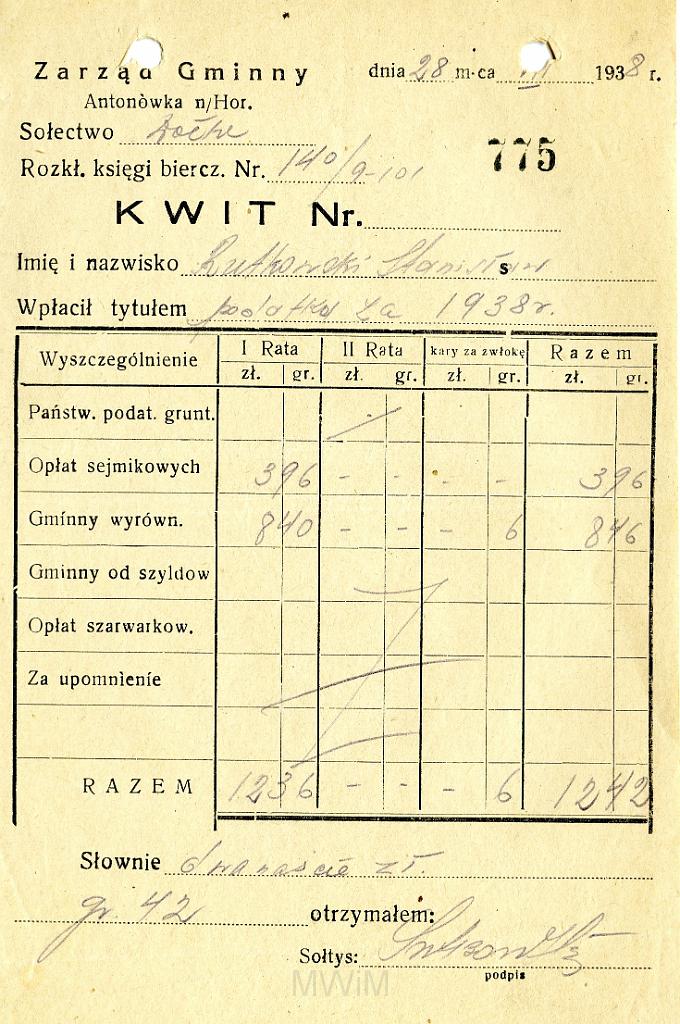 Zarząd Gminny dnia 28 m-ca III 1938 r.
Antonòwka n/Hor.
Sołectwo
Rozkł. księgi biercz. Nr. 140/9-101 775
KWIT Nr.
Imię i nazwisko Rutkowski Stanisław
Wpłacił tytułem podatku za 1938 r.
Wyszczególnienie I Rata II Rata kary za zwłokę Razem
zł. gr. zł. gr. zł. gr. zł. gr.
Państw. podat. grunt.
Opłat sejmikowych 3 96 - - - - 3 96
Gminny wyrówn. 8 40 - - - 6 8 46
Gminny od szyldow
Opłat szarwarkow.
Za upomnienie
RAZEM 12 36 - - - 6 12 42
Słownie dwanaście zł.
gr. 42 otrzymałem:
Sołtys:
podpis
MWiM